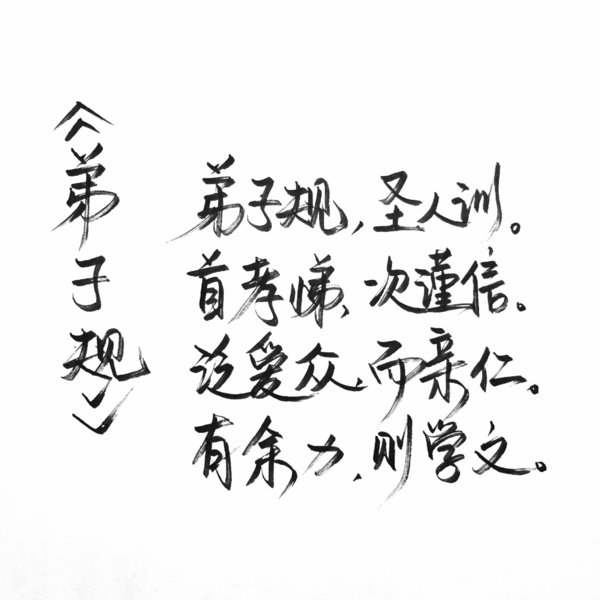 《弟子规》
弟子规,圣人训。
首孝悌,次谨信。
泛爱众,而亲仁。
有余力,则学文。